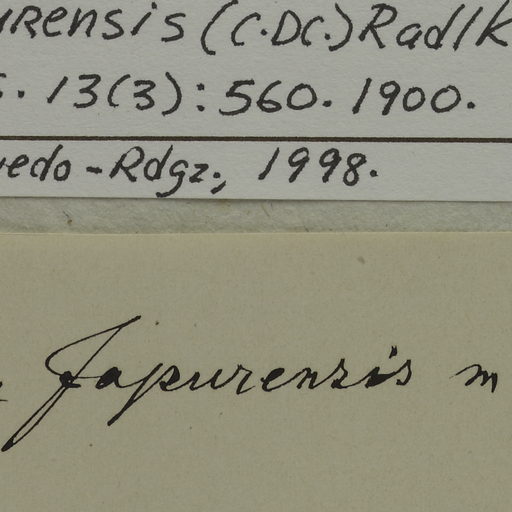 urensis (C.DC.) Radlk
s. 13(3): 560. 1900.
vedo-Rdgz., 1998.
Japurensis m